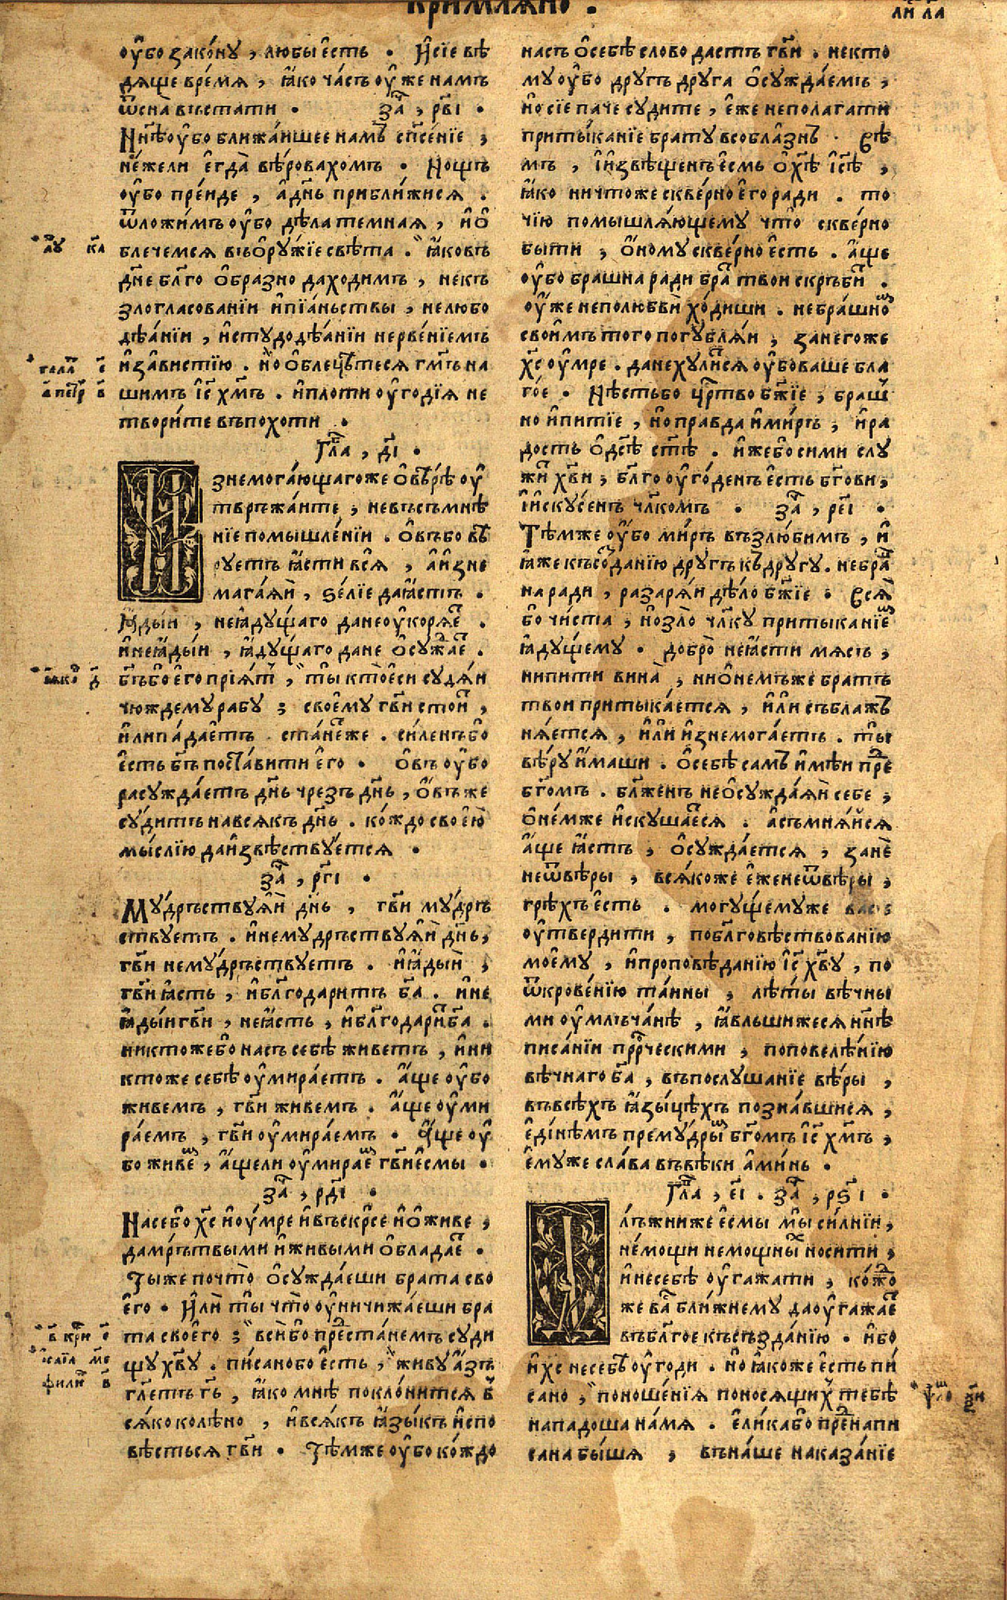 КРИМЛѦНО .
оу҆бо закону , любы є҆сть . И҆ сїе вѣ
дѧще врéмѧ , ꙗ҆ко часъ оу҆же намъ
ѿ сна въстати . за҄ , рв҃і .
Нн҃ѣ оу҆бо ближаишее намъ сп҃сéнїе ;
нéжели є҆гда̀ вѣ́ровахомъ . Нощъ
оу҆бо прéиде , а҆ дн҃ь приближисѧ .
ѿложимъ оу҆бо дѣла темнаѧ , и҆ ѡ҆
блечемсѧ въ ѻ҆рꙋжїе свѣта . ꙗ҆ковъ
дн҃е бл҃го ѻ҆бразно да ходимъ , не къ
злогласованїи и҆ пїáньствы , не любо
дѣáнїи , и҆ стꙋдодѣáнїи не рвéнїемъ
и҆ зáвистїю . но̀ ѡ҆блецѣ́тесѧ гм҃ъ на
шимъ і҆с҃ хм҃ъ . и҆ плоти оу҆гóдїѧ не
творите въ похоти .
Гла҄ , д҃і .
Изнемогáющагоже ѻ҆ вѣ́рѣ оу҆
твръжáите ; не въ съмнѣ
нїе помышлéнїи . ѻ҆въ бо вѣ
рꙋетъ ꙗ҆сти всѧ̀ , а҆ и҆зне
магáѧи , ѕéлїе да ꙗ҆стъ .
Ꙗ҆дыи , не ꙗ҆дꙋщаго да не оу҆корѧ́е .
и҆ не ꙗ҆дыи , ꙗ҆дꙋщаго да не ѻ҆сꙋжáе .
бг҃ъ бо є҆го прїѧт , ты кто є҆си сꙋдѧи
чюждемꙋ рабꙋ ; своемꙋ гв҃и стои ,
и҆ли пáдаетъ . стáнеже . силенъ бо
є҆сть бг҃ъ постáвити є҆го . Ѻ҆въ оу҆бо
расꙋждáетъ дн҃ь чрезъ дн҃ь , ѻ҆въ же
сꙋдитъ на всѧкъ дн҃ь . кождо своею̀
мыслїю да и҆звѣствꙋетсѧ .
за҄ , рг҃і .
Мꙋдръствꙋѧи дн҃ь , гв҃и мꙋдръ
ствꙋетъ . и҆ не мꙋдръствꙋѧи дн҃ь ,
гв҃и не мꙋдръствꙋетъ . и҆ ꙗ҆дыи ,
гв҃и ꙗ҆сть , и҆ бл҃годаритъ б҃а . и҆ не
ꙗ҆дыи гв҃и , не ꙗ҆сть , и҆ бл҃годари б҃а .
никтоже бо насъ себѣ живетъ , и҆ ни
ктоже себѣ оу҆мирáетъ . а҆ще оу҆бо
живемъ , гв҃и живемъ . а҆ще оу҆ми
рáемъ , гв҃и оу҆мирáемъ . а҆ще оу҆
бо живе , а҆ще ли оу҆мирае гв҃и є҆смы .
за҄ , рд҃і .
На се бо хс҃ и҆ оу҆мре и҆ въскр҃се и҆ ѡ҆живе ;
да мръ́твыми и҆ живыми ѻ҆бладáе .
Ты же почто ѻ҆сꙋждáеши брата сво
є҆го . И҆ли ты̀ что̀ оу҆ничижáеши бра
та своегò ; вси бо прéстанемъ сꙋди
щꙋ хв҃ꙋ . писано бо є҆сть , живꙋ а҆зъ
гл҃етъ гь҃ , ꙗ҆ко мнѣ поклóнитсѧ в
сѧко колѣно , и҆ всѧкъ ꙗ҆зыкъ и҆спо
вѣстьсѧ гв҃и . Тѣмже оу҆бо кождо
насъ ѡ҆ себѣ слово дастъ гв҃и , не кто
мꙋ оу҆бо дрꙋгъ дрꙋга ѻ҆сꙋждáемъ ,
но̀ сїе паче сꙋдите , є҆же не полагати
притыканїе братꙋ в соблазнъ . Вѣ
мъ , и҆ и҆звѣщенъ є҆смь ѡ҆ хѣ҃ і҆сѣ҃ ,
ꙗ҆ко ничтоже сквéрно є҆го ради . то
чїю помышлѧ́ющемꙋ что̀ сквéрно
быти , ѻ҆номꙋ сквéрно є҆сть . а҆ще
оу҆бо брашна ради бра твои скръби .
оу҆же не по любвѝ хóдиши . не брашно
своимъ того погꙋблѧ́и ; за негоже
хс҃ оу҆мре . да не хꙋлисѧ оу҆бо ваше бла
гóе . Нѣсть бо цр҃тво бж҃їе ; браш
но и҆ питїе , но̀ правда и҆ миръ ; и҆ ра
дость ѻ҆ дс҃ѣ ст҃ѣ . и҆же бо сими слꙋ
жи хв҃и ; бл҃го оу҆гóденъ є҆сть бг҃ови ;
и҆ и҆скꙋсенъ чл҃комъ . за҄ , ре҃і .
Тѣмже оу҆бо миръ възлюбимъ , и҆
ꙗ҆же къ созданїю дрꙋгъ къ дрꙋгꙋ . не бра
на ради , разарѧ́и дѣло бж҃їе . Всѧ̀
бо чиста ; но̀ зло чл҃кꙋ притыканїе
ꙗ҆дꙋщемꙋ . добрò не ꙗ҆сти мѧсъ ,
ни пити вина̀ ; ни ѡ҆ немъже братъ
твои притыкáетсѧ , и҆ли съблажъ
нѧ́етсѧ , и҆ли и҆знемогáетъ . ты
вѣрꙋ и҆маши . ѡ҆ себѣ самъ и҆мѣи пре
бг҃омъ . бл҃женъ не ѻ҆сꙋждáѧи себе ;
ѡ҆ немже и҆скꙋшáесѧ . а҆ съмнѧ́исѧ
а҆ще ꙗ҆стъ , ѻ҆сꙋждáетсѧ , занѐ
не ѿ вѣры , всѧкоже є҆же не ѿ вѣры ;
грѣхъ є҆сть . могꙋщемꙋже вас
оу҆твердити , по бл҃говѣствованїю
моемꙋ , и҆ проповѣданїю і҆с҃ хв҃ꙋ , по
ѿкровéнїю тáины ; лѣты вѣчны
ми оу҆млъчáнѣ , ꙗ҆вльшижесѧ нн҃ѣ
писáнїи прⷪ҇рческими ; по повелѣ́нїю
вѣчнаго б҃а , въ послꙋшанїе вѣры ,
въ всѣхъ ꙗ҆зы́цѣхъ познáвшиисѧ ,
є҆дінѣмъ премꙋдры бг҃омъ і҆с҃ хм҃ъ ,
є҆мꙋже слáва въ вѣки а҆минь .
Гла҄ , е҃і . за҄ , рѕ҃і .
Длъжни же є҆смы мы̀ силнїи ,
нéмощи немощны носити ,
и҆ не себѣ оу҆гажати ; кождо
же ва ближнемꙋ да оу҆гажáе
въ бл҃гое къ създáнїю . и҆бо
и҆ хс҃ не себѣ оу҆годи . но̀ ꙗ҆коже є҆сть пи
сано ; поношéнїѧ поносѧщих тебѣ
нападоша нá мѧ . є҆лика бо прéнапи
сана бышѧ ; въ нáше наказáнїе